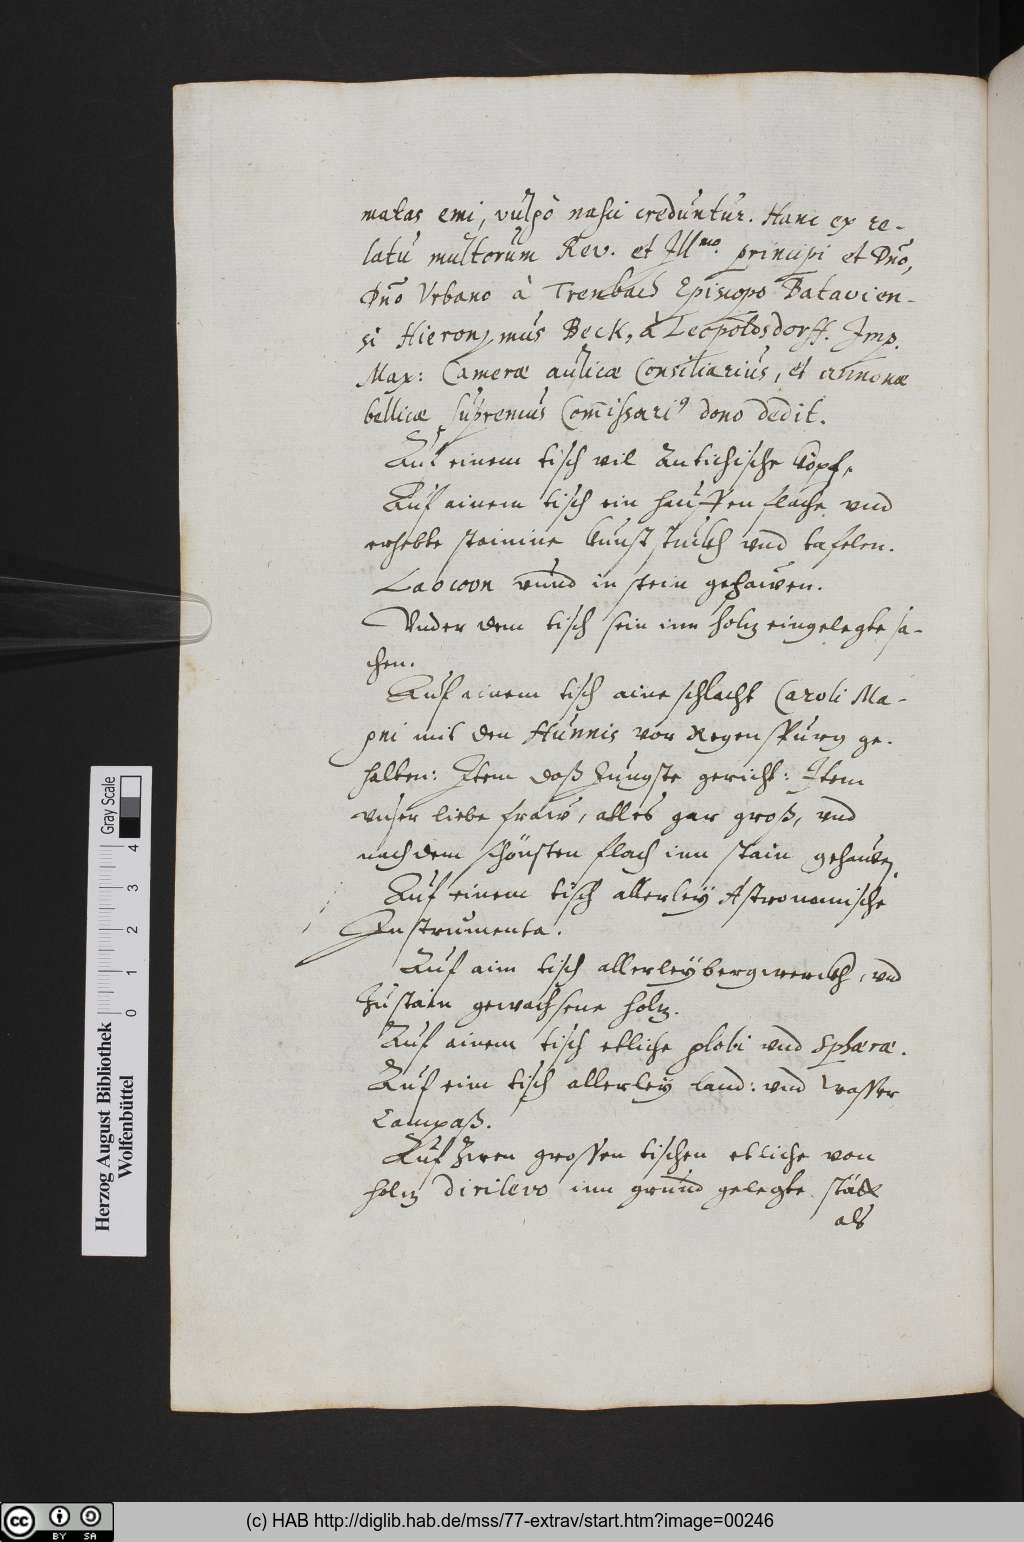 matas emi, vulgò nasci creduntur. Hanc ex re-
latu multorum Rev. et Ill.mo principi et Dño,
Dño Vrbano à Trenbach Episcopo Batavien-
si Hieronymus Beck, à Leopoldsdorff. Imp.
Max: Cameræ aulicæ Consiliarius, et annonæ
bellicæ supremus Com̃issari9 dono dedit.
Auf einem tisch vil Antichische köpf,
Auf ainem tisch ein hauffen flache vnd
erhebte stainine kunst stuckh vnd tafelen.
Laocoon rund in stein gehauwen.
Vnder dem tisch sein inn holz eingelegte sa-
chen.
Auf einem tisch aine schlacht Caroli Ma-
gni mit den Hunnis vor Regenspurg ge-
halten: Item daß Jungste gericht: Item
vnser liebe fraw, alles gar groß, vnd
nach dem schönsten flach inn stain gehauen.
Auf einem tisch allerley Astronomische
Instrumenta.
Auf aim tisch allerley bergwerckh, vnd
Zu stain gewachsene holz.
Auf ainem tisch etliche globi vnd Sphæræ.
Auf eim tisch allerley land: vnd wasser
Compaß.
Auf Zwen grossen tischen etliche von
holz di rilevo inn grund gelegte stätt
als
Herzog August Bibliothek
Wolfenbüttel
0 1 2 3 4
Gray Scale
cc BY SA
(c) HAB http://diglib.hab.de/mss/77-extrav/start.htm?image=00246